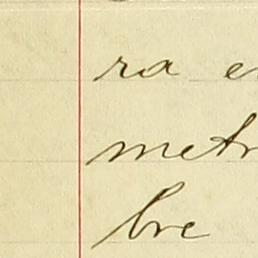 ra e
metr
bre